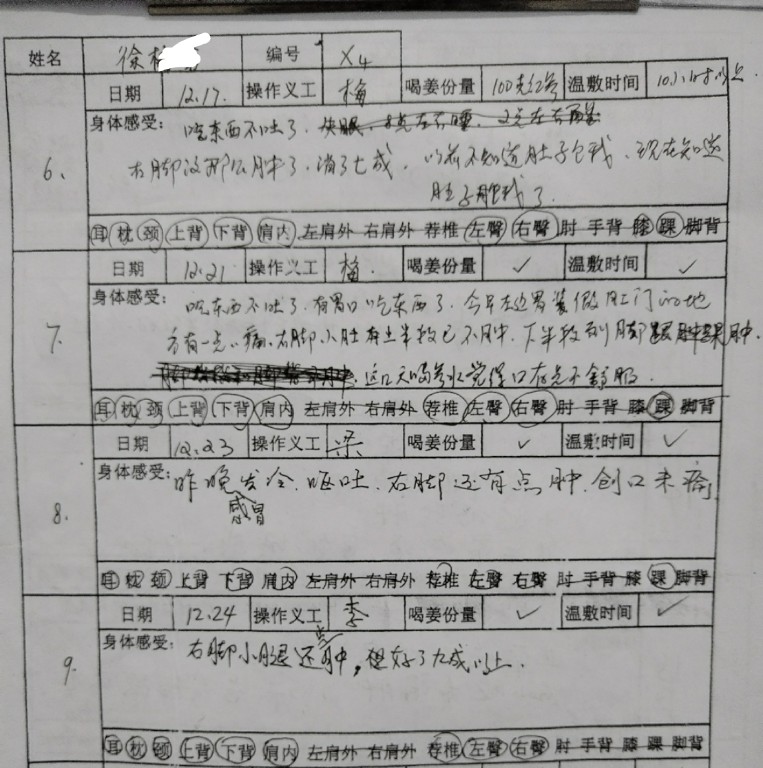 姓名 徐 编号 X4
日期 12.17. 操作义工 梅 喝姜份量 100克 温敷时间 10小时以上.
6. 身体感受: 吃东西不吐了.
右脚没那么肿了. 消了七成, 以前不知道肚子包我、现在知道
肚子
耳 枕 颈 上背 下背 肩内 左肩外 右肩外 荐椎 左臀 右臀 肘 手背 膝 踝 脚背
日期 12.21 操作义工 梅. 喝姜份量 ✓ 温敷时间 ✓
7. 身体感受: 吃东西不吐了. 有胃口吃东西了. 今早左边胃装假肛门的地
方有一点痛. 右脚小肚有上半截已不肿. 下半截到脚踝肿.
这几天喝姜水觉得口有点不舒服.
耳 枕 颈 上背 下背 肩内 左肩外 右肩外 荐椎 左臀 右臀 肘 手背 膝 踝 脚背
日期 12.23 操作义工 梁 喝姜份量 ✓ 温敷时间 ✓
8. 身体感受: 昨晚发冷. 呕吐. 右脚还有点肿. 创口未痛
感冒
耳 枕 颈 上背 下背 肩内 左肩外 右肩外 荐椎 左臀 右臀 肘 手背 膝 踝 脚背
日期 12.24 操作义工 李 喝姜份量 ✓ 温敷时间 ✓
9. 身体感受: 右脚小腿还点肿, 但好了九成以上.
耳 枕 颈 上背 下背 肩内 左肩外 右肩外 荐椎 左臀 右臀 肘 手背 膝 踝 脚背